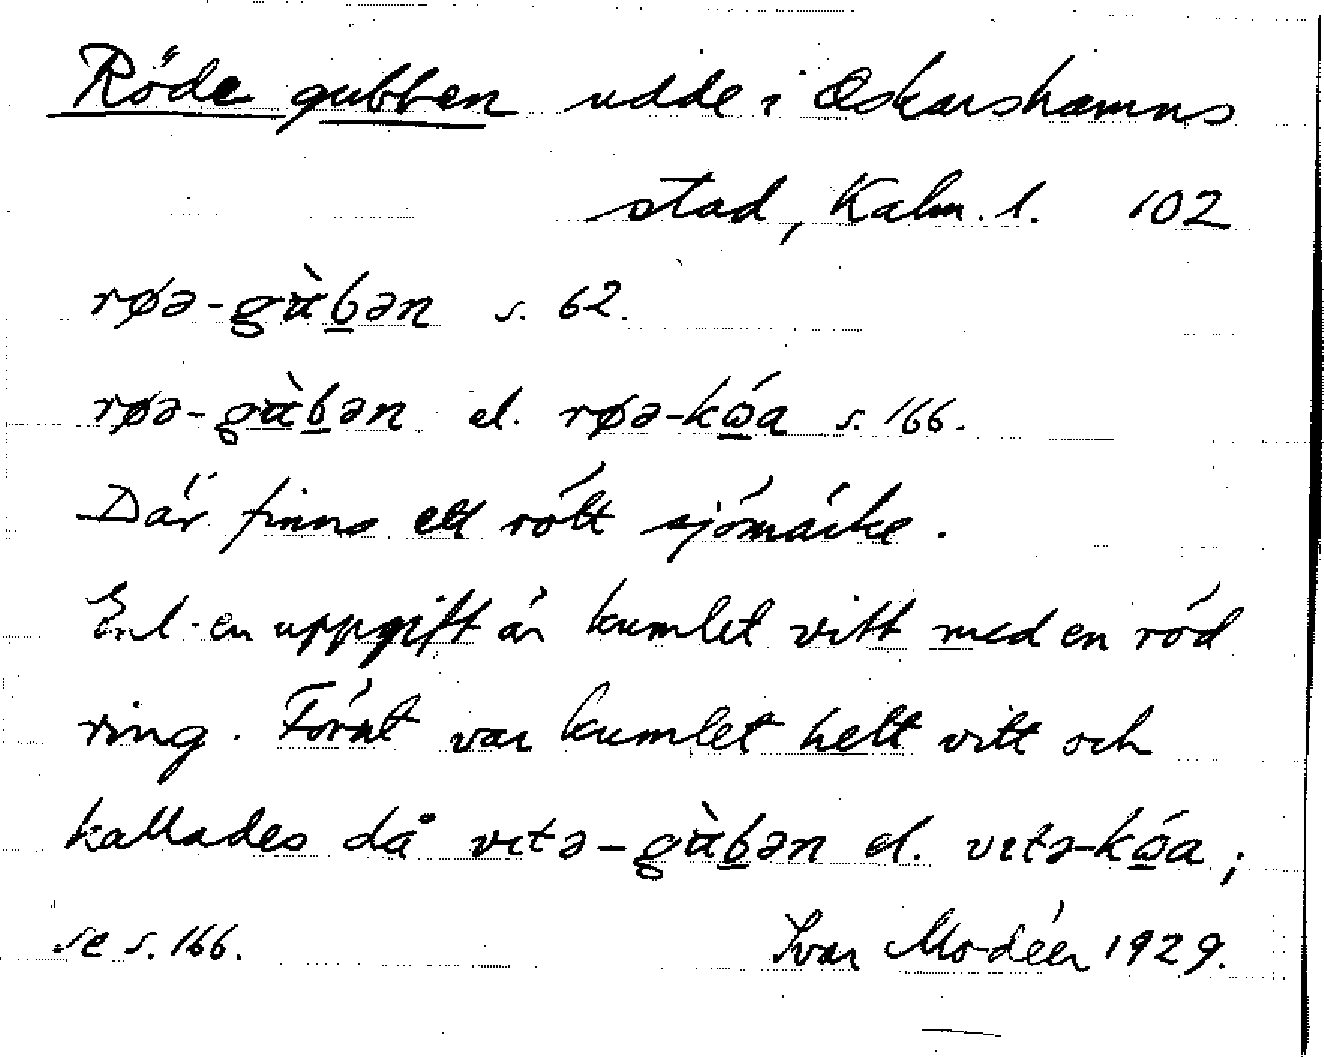 Röde gubben udde i Oskarshamns
stad, Kalm. l. 102
røə-gùbən s. 62.
røə-gùbən el. røə-kώa s. 166.
Där finns ett rött sjömärke.
Enl. en uppgift är kumlet vitt med en röd
ring. Förut var kumlet helt vitt och
kallades då vɩtə-gùbən el. vɩtə-kώa;
se s. 166. Ivar Modéer 1929.